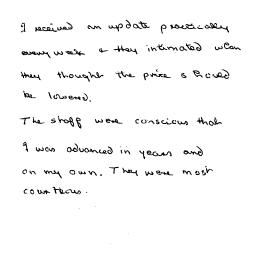 I received an update practically
every week & they intimated when
they thought the price should
be lowered.
The staff were conscious that
I was advanced in years and
on my own. They were most
courteous.